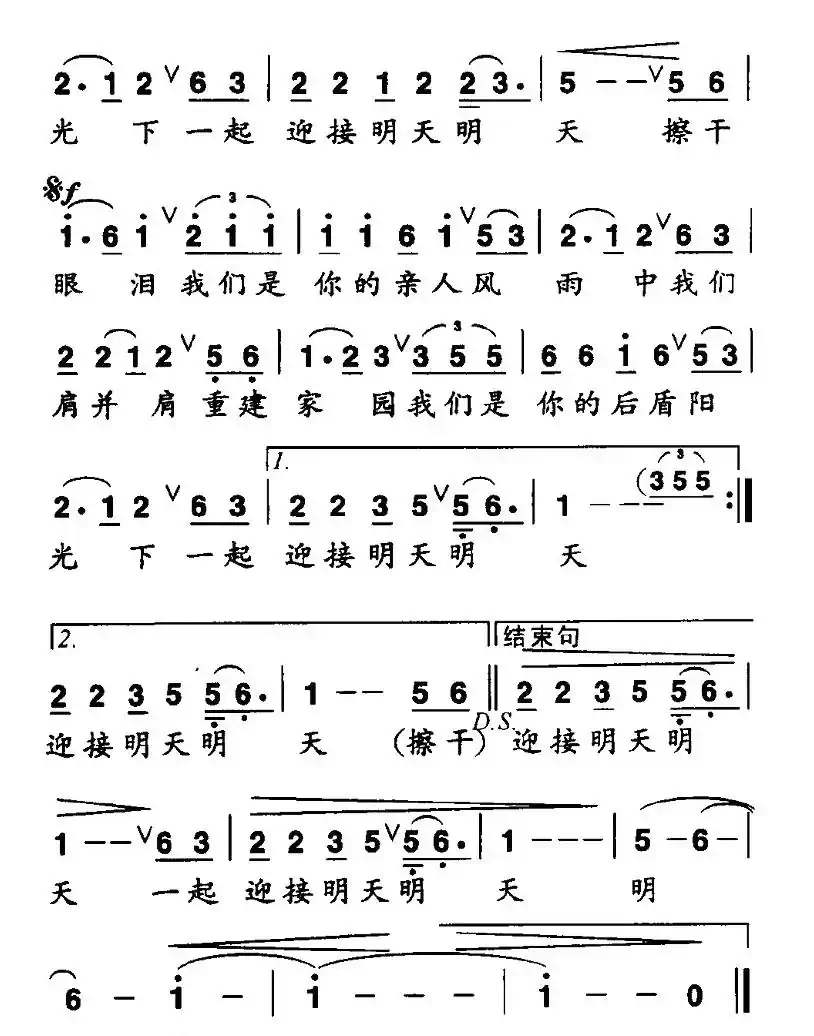 2·1 2 ∨ 6 3 | 2 2 1 2 2 3· | 5 - - ∨ 5 6 |
光 下 一起 迎接明天明 天 擦干
f
1·6 1 ∨ 2 1 1 | 1 1 6 1 ∨ 5 3 | 2·1 2 ∨ 6 3 |
眼 泪 我们是 你的亲人风 雨 中我们
2 2 1 2 ∨ 5 6 | 1·2 3 ∨ 3 5 5 | 6 6 1 6 ∨ 5 3 |
肩并 肩 重建 家 园我们是 你的后盾阳
1.
2·1 2 ∨ 6 3 | 2 2 3 5 ∨ 5 6· | 1 - - - (3 5 5 :||
光 下 一起 迎接明天明 天
2. 结束句
2 2 3 5 5 6· | 1 - - 5 6 || 2 2 3 5 5 6· |
D.S.
迎接明天明 天 (擦干) 迎接明天明
1 - - ∨ 6 3 | 2 2 3 5 ∨ 5 6· | 1 - - - | 5 - 6 - |
天 一起 迎接明天明 天 明
6 - 1 - | 1 - - - | 1 - - 0 ||